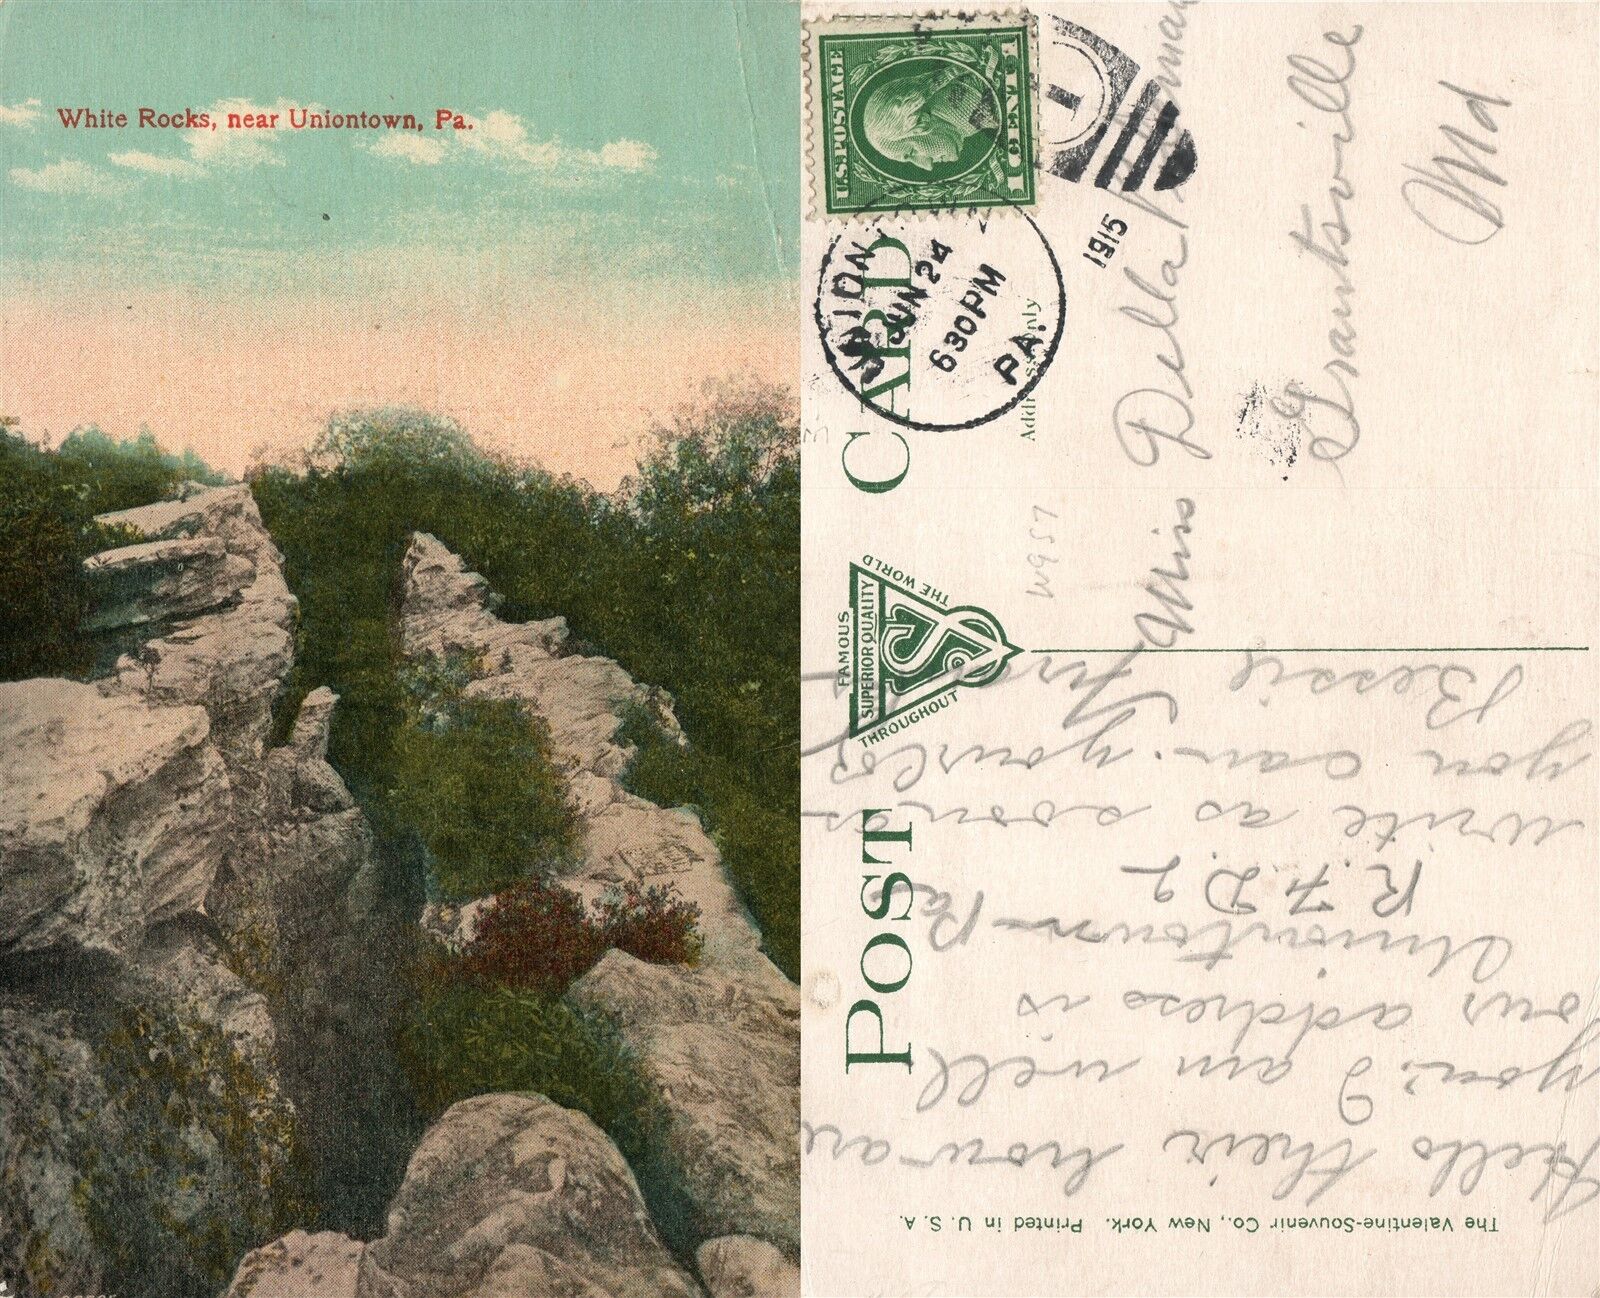 White Rocks, near Uniontown, Pa.
U.S. POSTAGE
1 CENT 1
UNION
JUN 24
630PM
PA.
1915
1
POST CARD
Address Only
FAMOUS
SUPERIOR QUALITY
THROUGHOUT
THE WORLD
W957
Miss Della
Grantsville
Md
Hello their how are
you. I am well
our address is
Uniontown Pa
R.F.D 2
write as soon as
you can. yours
Bessie
The Valentine-Souvenir Co., New York. Printed in U. S. A.